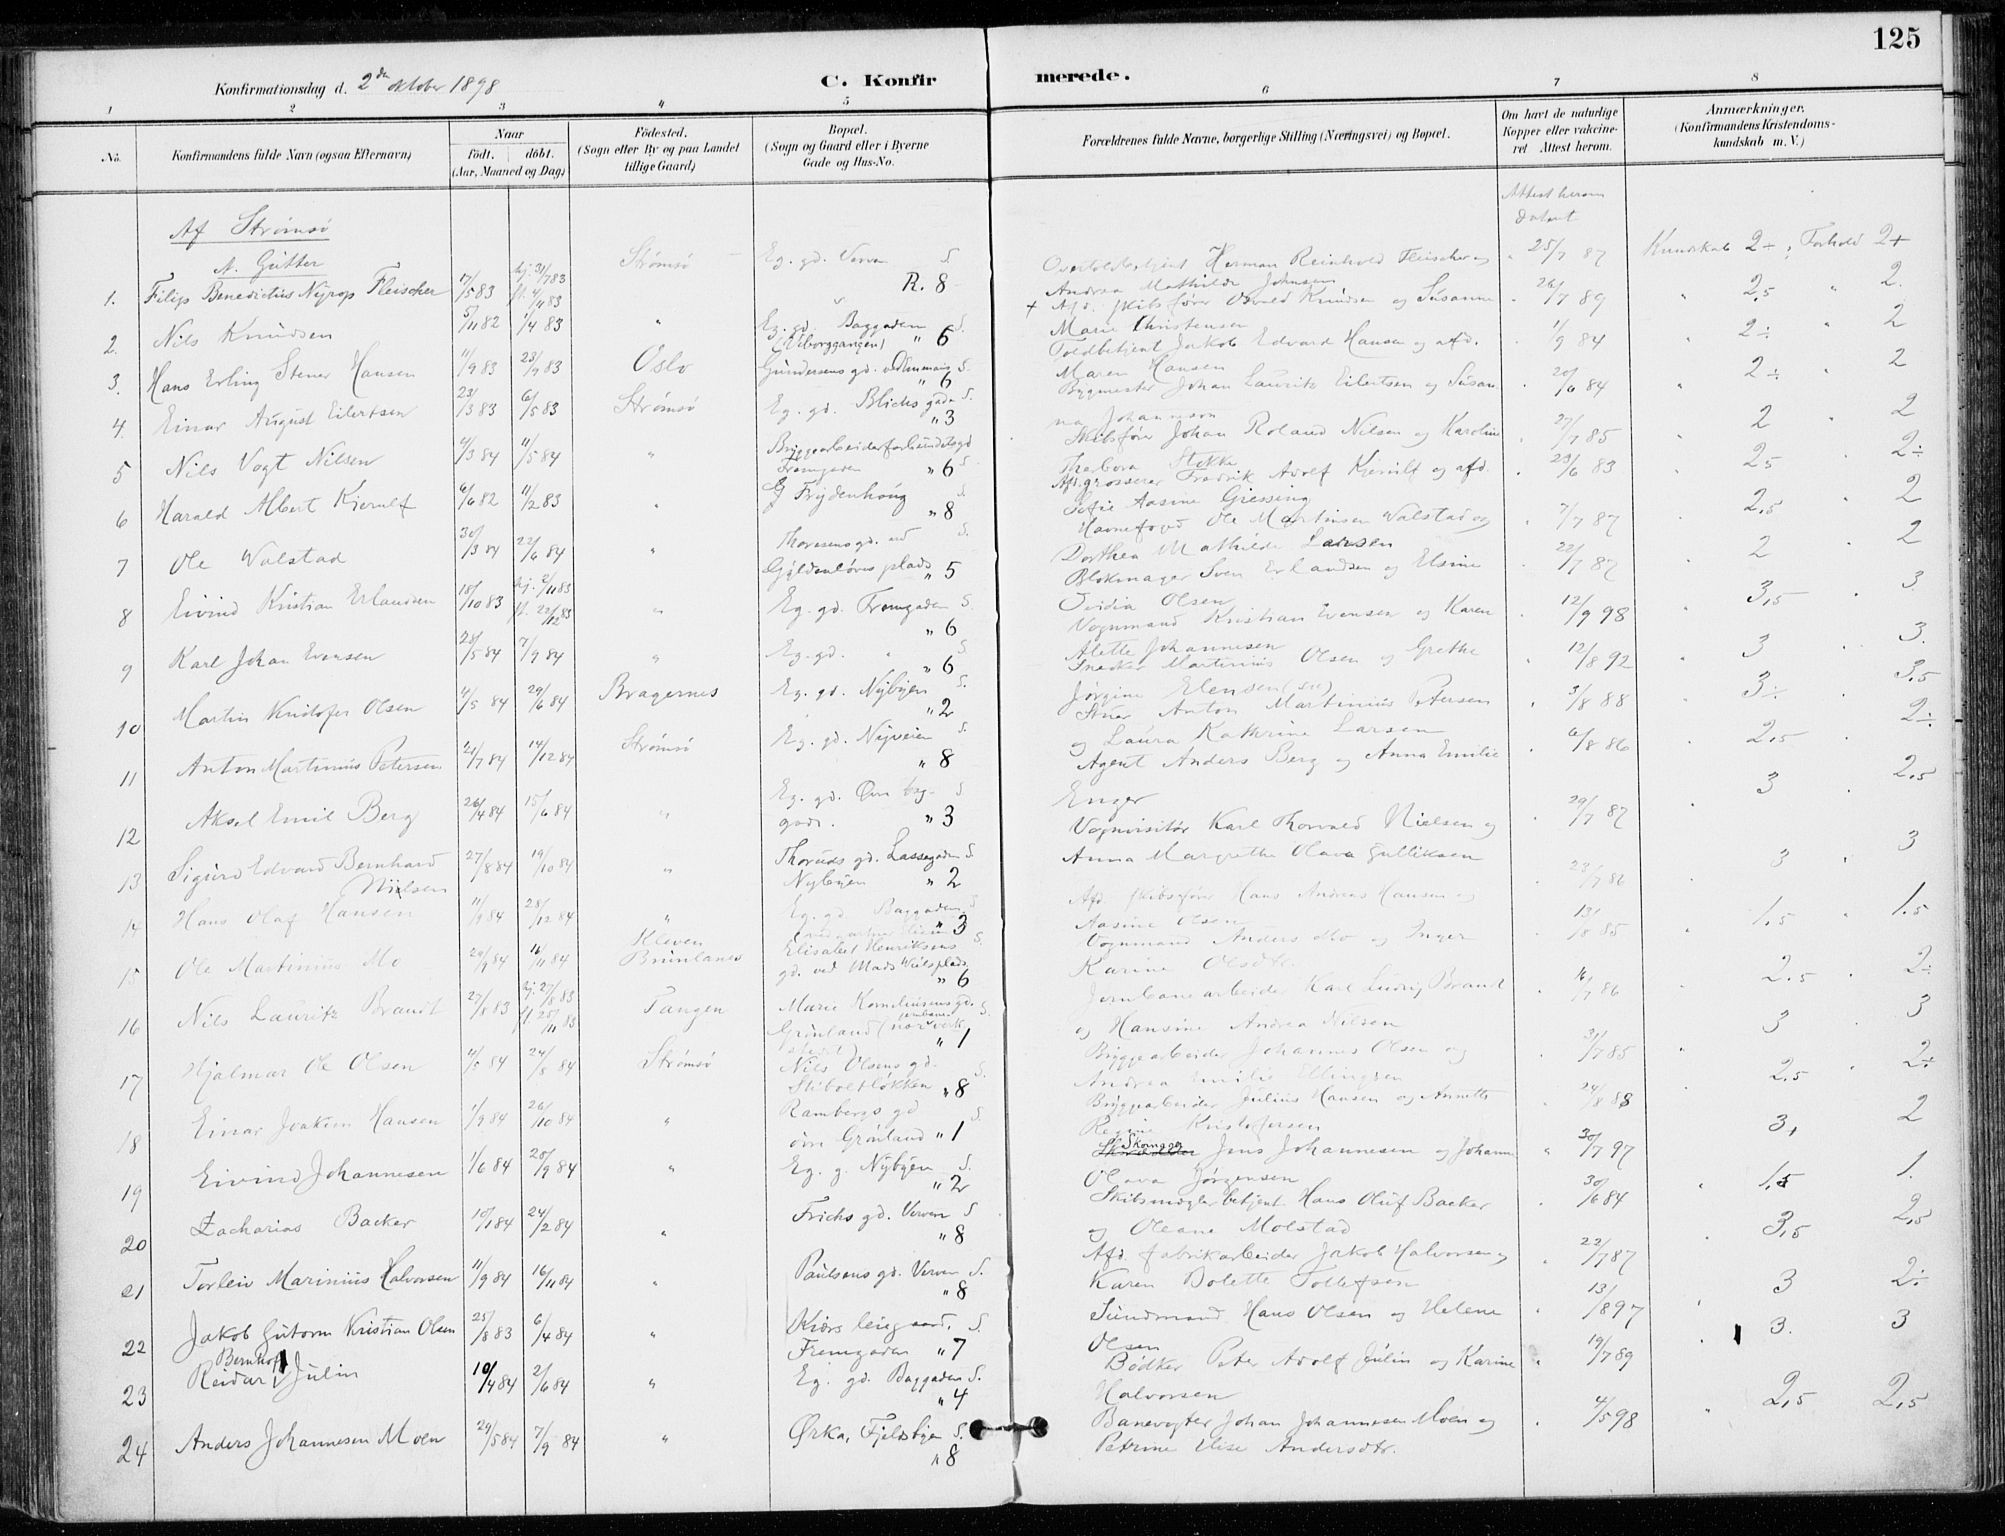 125
Konfirmationsdag d. 2den oktober 1898
C. Konfirmerede.
1 2 3 4 5 6 7 8
No.
Konfirmandens fulde Navn (ogsaa Efternavn)
Naar
födt. döbt.
(Aar, Maaned og Dag)
Födested.
(Sogn eller By og paa Landet
tillige Gaard)
Bopæl.
(Sogn og Gaard eller i Byerne
Gade og Hus-No.
Forældrenes fulde Navne, borgerlige Stilling (Næringsvei) og Bopæl.
Om havt de naturlige
Kopper eller vakcine-
ret Attest herom.
Anmærkninger.
(Konfirmandens Kristendoms-
kundskab m. V.)
Attest herom
datert
Af Strømsø
A. Gutter
1. Filip Benedictus Nyrop Fleischer 17/5 83 hj. 31/7 83 Strømsø Eg. gd. Verven S. R. 8 Herman Reinhold Fleischer og 25/7 87 Kundskab 2÷ ; Forhold 2+
fl. 4/11 83 Andrea Mathilde Johnsen
2. Nils Knudsen 5/11 82 1/4 83 " Eg. gd. Baggaden S. + Afd. skibsfører Osvald Knudsen og Susanne 26/7 89 " 2,5 " 2.
(Viborggangen) " 6 Marie Christensen
3. Hans Erling Stener Hansen 11/9 83 23/9 83 Oslo Gundersens gd. S. Toldbetjent Jakob Edvard Hansen og afd. 1/9 84 2÷ " 2
" 6 Maren Hansen
4. Einar August Eilertsen 23/3 83 6/5 83 Strømsø Eg. gd. Blichs gade S. Bygmester Johan Lauritz Eilertsen og Susan 20/6 84 " 2÷ " 2
" 3 na Johannesen
5 Nils Vogt Nilsen 4/3 84 11/5 84 " Bryggearbeiderforbundets gd Skibsfører Johan Roland Nilsen og Karoline 27/7 85 2 " 2
Fremgaden " 6 S. Tharbora Stokke
6 Harald Albert Kierulf 6/6 82 11/2 83 " Frydenhaug S. Afd. grosserer Fredrik Adolf Kierulf og afd. 23/6 83 2,5 " 2÷
" 8 Sofie Aasine Giessing
7 Ole Walstad 30/3 84 22/6 84 " Thoresens gd. ved S. Havnefoged Ole Martinsen Walstad og 7/7 87 2,5 " 2
Gyldenløves plads " 5 Dorthea Mathilde Larsen
8 Eivind Kristian Erlandsen 18/10 83 hj. 2/11 83 " Eg. gd. Fremgaden S. Blokmager Sven Erlandsen og Elsine 22/7 87 2 " 2
fl. 22/12 83 " 6 Ovidia Olsen
9 Karl Johan Evensen 28/5 84 7/9 84 " Eg. gd. " S. Vognmand Kristian Evensen og Karen 12/9 98 3,5 3.
" 6 Alette Johannesen
10 Martin Kristofer Olsen 4/5 84 29/6 84 Bragernes Eg. gd. Nybyen S. Snedker Martinius Olsen og Grethe 12/8 92 3 3.
" 2 Jørgine Elensen (sic)
11 Anton Martinius Petersen 21/7 84 14/12 84 Strømsø Eg. gd. Nyveien S. Stuer Anton Martinius Petersen 3/8 88 3÷ 3,5
" 8 og Laura Kathrine Larsen
12 Aksel Emil Berg 26/4 84 15/6 84 " Eg. gd. S Agent Anders Berg og Anna Emilie 6/8 86 2,5 2÷
gade. " 3 Enger
13 Sigurd Edvard Bernhard Nielsen 27/8 84 19/10 84 " Thoruds gd. Lassegaden S. Vognvisitør Karl Thorvald Nielsen og 29/7 87 3 2,5
Nybyen " 2 Anna Margrethe Olava Gulliksen
14 Hans Olaf Hansen 11/9 84 28/12 84 " Eg. gd. Baggaden S Afd. skibsfører Hans Andreas Hansen og 23/7 86 3 " 3
" 3 Aasine Olsen
15 Ole Martinius Mo 29/9 84 16/11 84 Kleven Brunlanes Elisabet Henriksens S. Vognmand Anders Mo og Inger 13/8 85 1,5 " 1.5
gd. ved Mads Wiels plads " 6 Karine Olsdtr.
16 Nils Lauritz Brandt 27/8 83 hj. 27/8 83 Tangen Marie Korneliusens gd. S. Jernbanearbeider Karl Ludvig Brandt 16/7 86 2.5 2÷
fl. 25/11 83 Grønland (nær jernbaneverkstedet) " 1 og Hansine Andrea Nilsen
17 Hjalmar Ole Olsen 4/5 84 24/8 84 Strømsø Nils Olsens gd. S. Bryggearbeider Johannes Olsen og 31/7 85 3 3
Stiboltløkken " 8 Andrea Emilie Ellingsen
18 Einar Joakim Hansen 1/9 84 26/10 84 " Rambergs gd S. Bryggearbeider Julius Hansen og Annette 24/8 88 2,5 2÷
øvre Grønland " 1 Regine Kristofersen
19 Eivind Johannesen 1/6 84 28/9 84 " Eg. g. Nybyen S. Skomager Jens Johannesen og Johanne 30/7 97 3, 2
" 2 Olava Jørgensen
20 Zacharias Backer 10/1 84 24/2 84 " Frichs gd. Verven S Skibsmæglerbetjent Hans Oluf Backer 30/6 84 1,5 1.
" 8 og Oleane Molstad
21 Torleiv Marinius Halvorsen 11/9 84 16/11 84 " Paulsens gd. Verven S. Afd. fabrikarbeider Jakob Halvorsen og 22/7 87 3,5 2,5
" 8 Karen Bolette Tollefsen
22 Jakob Gutorm Kristian Olsen 25/8 83 6/4 84 " Kiærs leiegaard, S. Sundmand Hans Olsen og Helene 13/8 97 3 2÷
Fremgaden " 7 Olsen
23 Reidar Bernhof Julin 10/4 84 2/6 84 " Eg. gd. Baggaden S. Bødker Peter Adolf Julin og Karine 19/7 89 3. 3
" 4 Halvorsen
24 Anders Johannesen Moen 29/5 84 7/9 84 " Ørka, Fjeldbyen S. Banevogter Johan Johannesen Moen og 4/5 98 2,5 2,5
" 8 Petrine Elise Andersdtr.